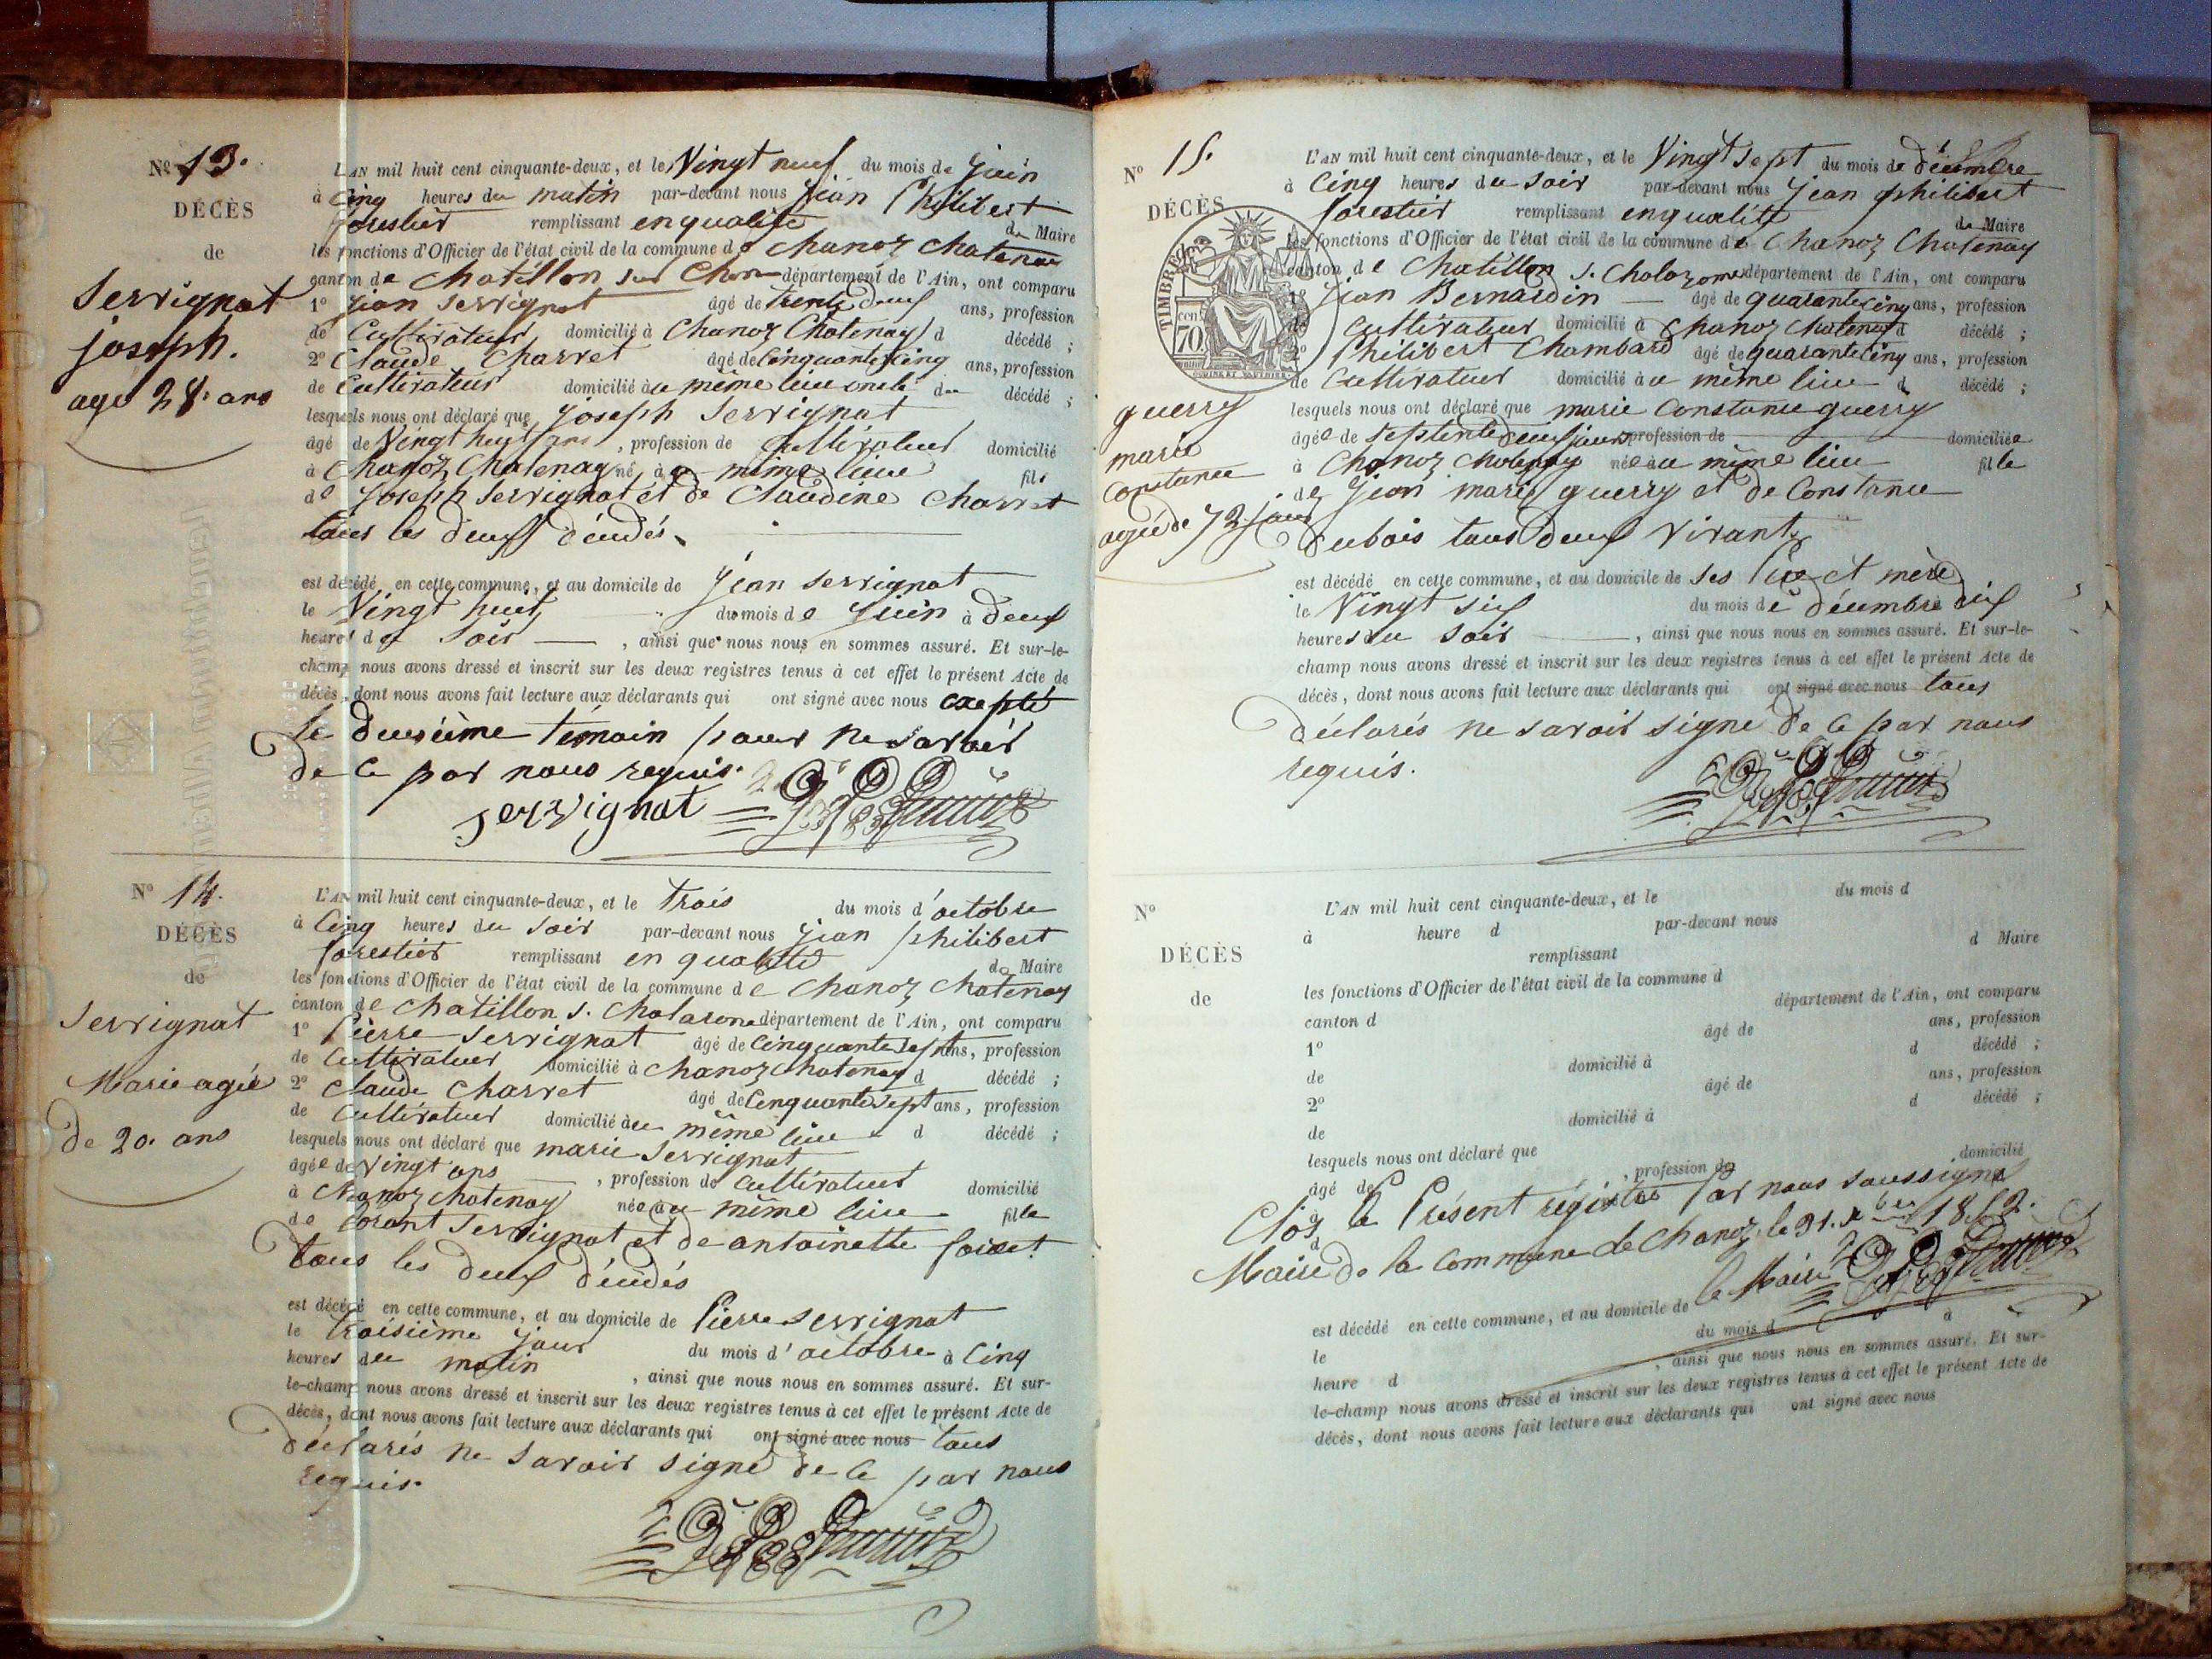 Nº 13.
DÉCÈS
de
Servignat
joseph.
agé 28. ans
L'AN mil huit cent cinquante-deux, et le Vingt neuf du mois de juin
à Cinq heures du matin par-devant nous jean Philibert
forestier remplissant en qualité de Maire
les fonctions d'Officier de l'état civil de la commune de Chanoz Chatenay
canton de Chatillon sur Chon département de l'Ain, ont comparu
1º jean Servignat âgé de trente deux ans, profession
de Cultivateur domicilié à Chanoz Chatenay d décédé ;
2º Claude Charvet âgé de Cinquante Cinq ans, profession
de Cultivateur domicilié au même lieu oncle du décédé ;
lesquels nous ont déclaré que joseph Servignat
âgé de Vingt huit ans , profession de Cultivateur domicilié
à Chanoz Chatenay né à au même lieu fils
de Joseph Servignat et de Claudine Charvet
tous les deux décédés.
est décédé en cette commune, et au domicile de jean Servignat
le Vingt huit du mois de juin à deux
heures du Soir , ainsi que nous nous en sommes assuré. Et sur-le-
champ nous avons dressé et inscrit sur les deux registres tenus à cet effet le présent Acte de
décès, dont nous avons fait lecture aux déclarants qui ont signé avec nous excepté
le deuxième témoin pour ne savoir
de ce par nous requis.
servignat
Nº 14.
DÉCÈS
de
Servignat
Marie agée
de 20. ans
L'AN mil huit cent cinquante-deux, et le trois du mois d'octobre
à Cinq heures du Soir par-devant nous jean philibert
forestier remplissant en qualité de Maire
les fonctions d'Officier de l'état civil de la commune de Chanoz Chatenay
canton de Chatillon s. Chalarone département de l'Ain, ont comparu
1º Pierre Servignat âgé de Cinquante Sept ans, profession
de Cultivateur domicilié à Chanoz Chatenay d décédé ;
2º Claude Charvet âgé de Cinquante Sept ans, profession
de Cultivateur domicilié au même lieu d décédé ;
lesquels nous ont déclaré que marie Servignat
âgée de Vingt ans , profession de Cultivateur domicilié
à Chanoz Chatenay née au même lieu fille
de Lorant Servignat et de antoinette
tous les deux décédés
est décédé en cette commune, et au domicile de Pierre Servignat
le troisième jour du mois d'octobre à Cinq
heures du matin , ainsi que nous nous en sommes assuré. Et sur-
le-champ nous avons dressé et inscrit sur les deux registres tenus à cet effet le présent Acte de
décès, dont nous avons fait lecture aux déclarants qui ont signé avec nous tous
déclarés ne Savoir signé de ce par nous
requis.
Nº 15.
DÉCÈS
TIMBRE
70 cen
guerry
marie
Constance
agée de 72 jours
L'AN mil huit cent cinquante-deux, et le Vingt Sept du mois de décembre
à Cinq heures du Soir par-devant nous jean philibert
forestier remplissant en qualité de Maire
les fonctions d'Officier de l'état civil de la commune de Chanoz Chatenay
canton de Chatillon s. Chalarone département de l'Ain, ont comparu
1º jean Bernardin âgé de quarante Cinq ans, profession
de Cultivateur domicilié à Chanoz Chatenay d décédé ;
2º Philibert Chambard âgé de quarante Cinq ans, profession
de Cultivateur domicilié au même lieu d décédé ;
lesquels nous ont déclaré que marie Constance guerry
âgée de Septente deux jours profession de domiciliée
à Chanoz Chatenay née au même lieu fille
de jean marie guerry et de Constance
Dubois tous deux Vivant.
est décédé en cette commune, et au domicile de ses Père et mère
le Vingt six du mois de décembre à dix
heures du Soir , ainsi que nous nous en sommes assuré. Et sur-le-
champ nous avons dressé et inscrit sur les deux registres tenus à cet effet le présent Acte de
décès, dont nous avons fait lecture aux déclarants qui ont signé avec nous tous
déclarés ne savoir signé de ce par nous
requis.
Nº
DÉCÈS
de
L'AN mil huit cent cinquante-deux, et le du mois d
à heure d par-devant nous
remplissant d Maire
les fonctions d'Officier de l'état civil de la commune d
canton d département de l'Ain, ont comparu
1º âgé de ans, profession
de domicilié à d décédé ;
2º âgé de ans, profession
de domicilié à d décédé ;
lesquels nous ont déclaré que
âgé de , profession de domicilié
à
d
Clos le Présent régistre Par nous soussigné
Maire de la Commune de Chanoz, le 31. xbre 1852.
le Maire
est décédé en cette commune, et au domicile de
le du mois d à
heure d , ainsi que nous nous en sommes assuré. Et sur-
le-champ nous avons dressé et inscrit sur les deux registres tenus à cet effet le présent Acte de
décès, dont nous avons fait lecture aux déclarants qui ont signé avec nous